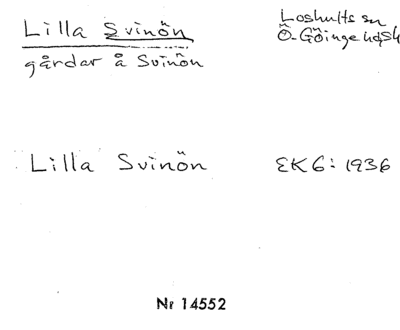 Lilla Svinön
Loshults sn
Ö. Göinge hd
gårdar å Svinön
Lilla Svinön
EK6: 1936
Nr 14552